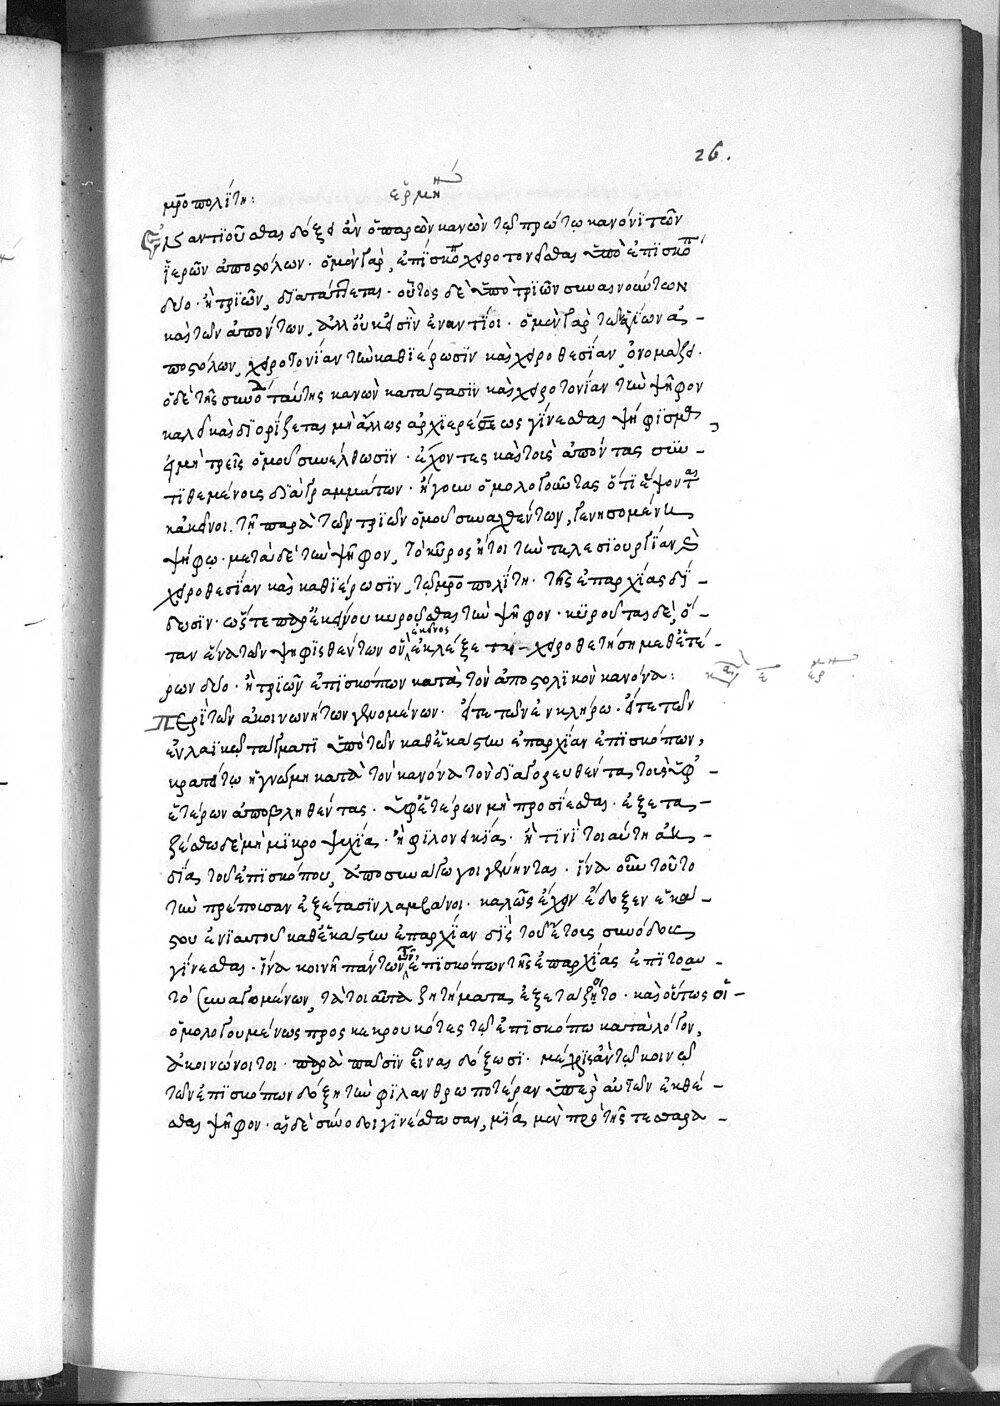 26.
μητροπολίτη: ἑρμη
Ἐναντιοῦσθαι δόξει ἂν ὁ παρὼν κανὼν τῷ πρώτῳ κανόνι τῶν
ἱερῶν ἀποστόλων· ὁ μὲν γὰρ, ἐπίσκοπον χειροτονεῖσθαι ὑπὸ ἐπισκόπων
δύο· ἢ τριῶν, διατάττεται· οὗτος δὲ ὑπὸ τριῶν συναινούντων
καὶ τῶν ἀπόντων, ἀλλ' οὔκ εἰσὶν ἐναντίοι· ὁ μὲν γὰρ τῶν ἁγίων ἀ-
ποστόλων, χειροτονίαν τὴν καθιέρωσιν καὶ χειροθεσίαν, ὀνομάζει·
ὁ δὲ τῆς συνόδου ταύτης κανὼν κατάστασιν καὶ χειροτονίαν τὴν ψῆφον
καλεῖ καὶ διορίζεται μὴ ἄλλως ἀρχιερέως γίνεσθαι ψήφισμα,
εἰ μὴ τρεῖς ὁμοῦ συνέλθωσιν· ἔχοντες καὶ τοὺς ἀπόντας συν-
τιθεμένους διὰ γραμμάτων· ἤγουν ὁμολογοῦντας ὅτι ἕψονται
κἀκεῖνοι τῇ παρὰ τῶν τριῶν ὁμοῦ συνελθόντων, γενησομένῃ
ψήφῳ· μετὰ δὲ τὴν ψῆφον, τὸ κῦρος ἤτοι τὴν τελεσιουργίαν καὶ
χειροθεσίαν καὶ καθιέρωσιν, τῷ μητροπολίτῃ· τῆς ἐπαρχίας δί-
δωσιν· ὥστε παρ' ἐκείνου κυροῦσθαι τὴν ψῆφον· κυροῦται δὲ, ὅ-
ταν ἕνα τῶν ψηφισθέντων ὃν ἐκεῖνος ἐκλέξεται χειροθετήσῃ μεθ' ἑτέ-
ρων δύο· ἢ τριῶν ἐπισκόπων κατὰ τὸν ἀποστολικὸν κανόνα: ε ἑρμη
Περὶ τῶν ἀκοινωνήτων γενομένων· εἴτε τῶν ἐν κλήρῳ· εἴτε τῶν
ἐν λαϊκῷ τάγματι ὑπὸ τῶν καθ' ἑκάστην ἐπαρχίαν ἐπισκόπων,
κρατείτω ἡ γνώμη κατὰ τὸν κανόνα τὸν διαγορεύοντα τοὺς ὑφ' -
ἑτέρων ἀποβληθέντας· ὑφ' ἑτέρων μὴ προσίεσθαι· ἐξετα-
ζέσθω δὲ μὴ μικροψυχίᾳ· ἢ φιλονεικίᾳ· ἤ τινι τοιαύτῃ ἀη-
δίᾳ τοῦ ἐπισκόπου, ἀποσυνάγωγοι γεγένηνται· ἵνα οὖν τοῦτο
τὴν πρέπουσαν ἐξέτασιν λαμβάνοι· καλῶς ἔχειν ἔδοξεν ἑκά-
στου ἐνιαυτοῦ καθ' ἑκάστην ἐπαρχίαν δὶς τοῦ ἔτους συνόδους
γίνεσθαι· ἵνα κοινῇ πάντων τῶν ἐπισκόπων τῆς ἐπαρχίας ἐπὶ τὸ αυ-
τὸ συναγομένων, τὰ τοιαῦτα ζητήματα, ἐξετάζοιτο· καὶ οὕτως οἱ -
ὁμολογουμένως προσκεκρουκότες τῷ ἐπισκόπῳ κατὰ λόγον,
ἀκοινώνητοι· παρὰ πᾶσιν εἶναι δόξωσι· μέχρις ἂν τῷ κοινῷ
τῶν ἐπισκόπων δόξῃ τὴν φιλανθρωποτέραν ὑπὲρ αὐτῶν ἐκθέ-
σθαι ψῆφον· αἱ δὲ σύνοδοι γινέσθωσαν, μία, μὲν πρὸ τῆς τεσσαρα-